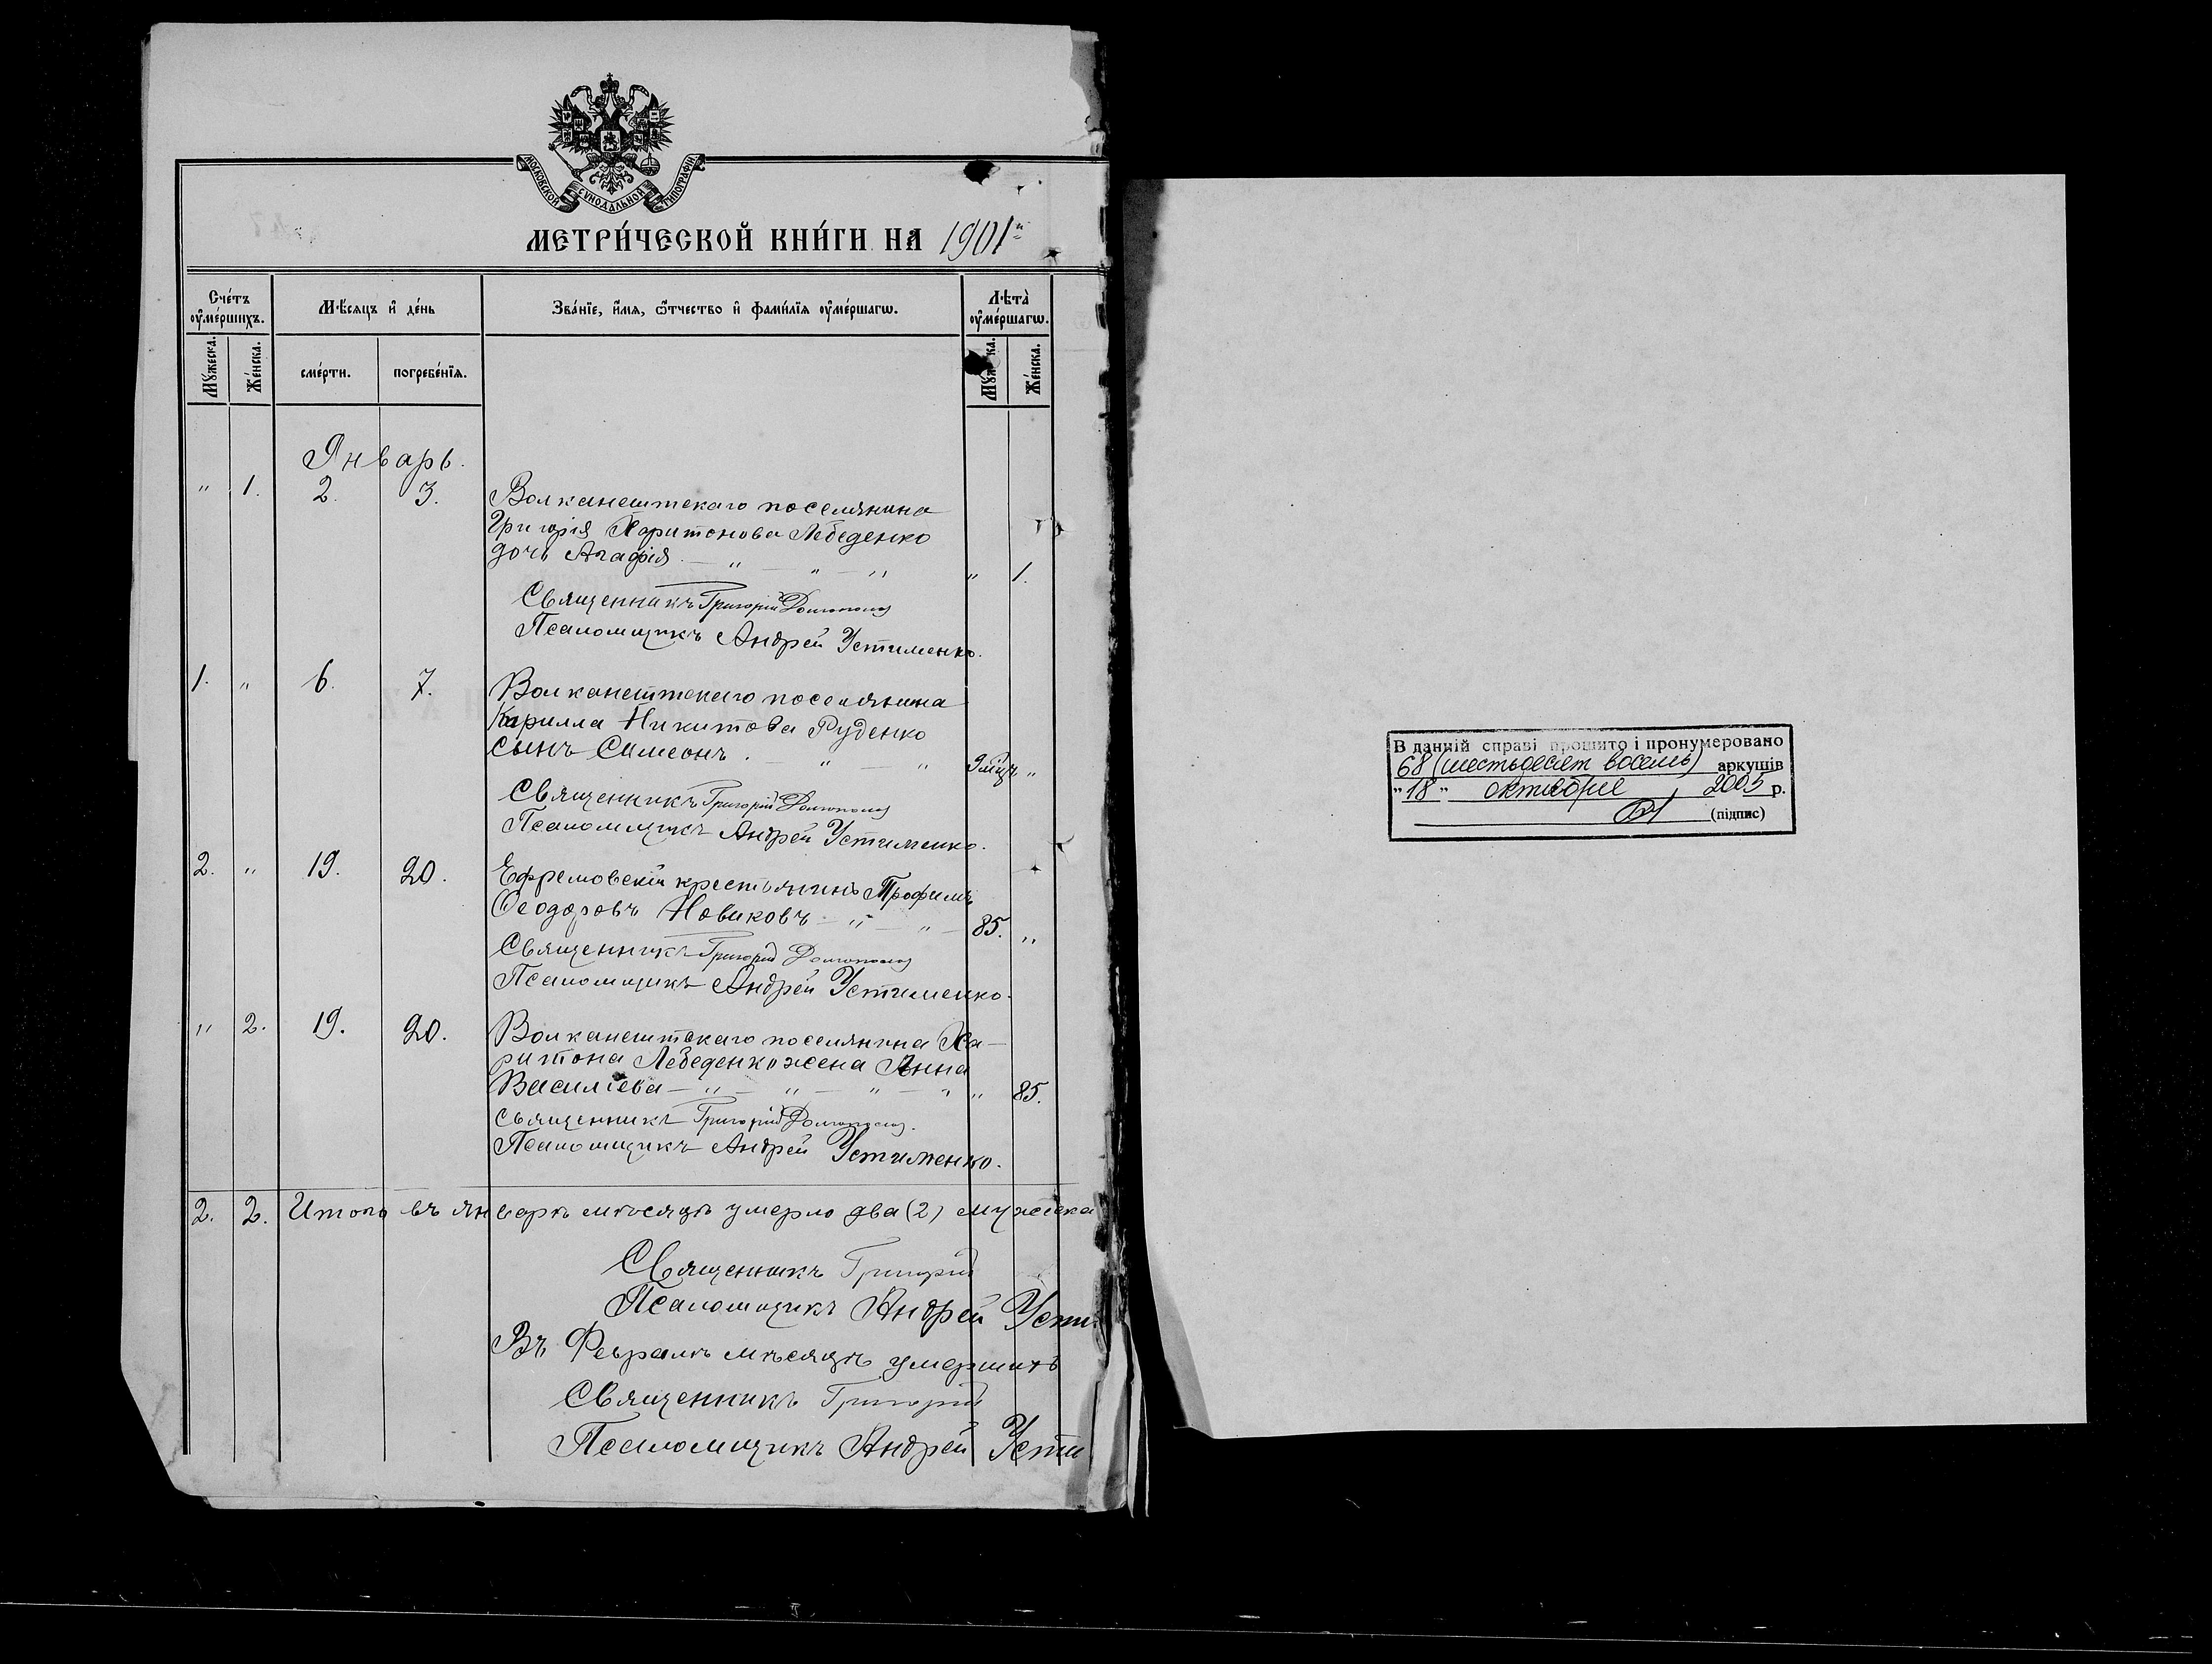 МОСКОВСКОЙ СѴНОДАЛЬНОЙ ТИПОГРАФІИ
МЕТРИ́ЧЕСКОЙ КНИ́ГИ НА 1901й
Сче́тъ ᲂу҆ме́ршихъ.
Мѣ́сѧцъ и҆ де́нь
Зва́нїе, и҆́мѧ, ѻ҆́тчество и҆ фами́лїѧ ᲂу҆ме́ршагѡ.
Лѣта̀ ᲂу҆ме́ршагѡ.
Мꙋ́жеска.
Же́нска.
сме́рти.
погребе́нїѧ.
Мꙋж ка.
Же́нска.
Январь.
" 1. 2. 3. Волканештскаго поселянина
Григорія Харитонова Лебеденко
дочь Агафія — " — " — " " 1.
Священникъ Григорій Долгополов
Псаломщикъ Андрей Устименко.
1. " 6. 7. Волканештскаго поселянина
Кирилла Никитова Руденко
сынъ Симеонъ. — " — " 9 мцъ "
Священникъ Григорій Долгополов
Псаломщикъ Андрей Устименко.
2. " 19. 20. Ефремовскій крестьянинъ Трофимъ
Ѳеодоровъ Новиковъ — " — " — 85. "
Священникъ Григорій Долгополов
Псаломщикъ Андрей Устименко.
" 2. 19. 20. Волканештскаго поселянина Ха-
ритона Лебеденко жена Анна
Василіева — " — " — " — " " 85.
Священникъ Григорій Долгополов.
Псаломщикъ Андрей Устименко.
2. 2. Итого въ январѣ мѣсяцѣ умерло два (2) мужеска
Священникъ Григорій
Псаломщикъ Андрей Усти
Въ Февралѣ мѣсяцѣ умершихъ
Священникъ Григорій
Псаломщикъ Андрей Усти
В данній справі прошито і пронумеровано
68 (шестьдесят восемь) аркушів
"18" октября 2005 р.
(підпис)